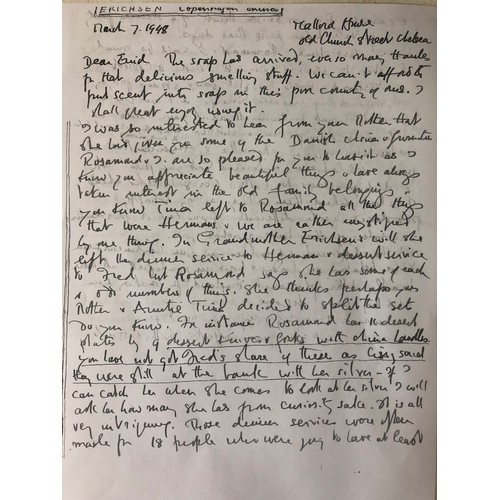 ERICHSEN Copenhagen china
March 7. 1948
Mallord House
Old Church Street Chelsea
Dear Enid The soap has arrived, ever so many thanks
for that delicious smelling stuff. We can't afford to
put scent into soaps in this poor country of ours. I
shall great enjoy using it.
I was so interested to hear from your Mother that
she has given you some of the Danish china & from
Rosamund & I are so pleased for you to have it as I
know you appreciate beautiful things & have always
taken interest in the old family belongings.
You know Tina left to Rosamund all the things
that were Hermans & we are rather mystified
by one thing. In Grandmother Erichsen's will she
left the dinner service to Herman & dessert service
to Fred but Rosamund says she has some of each
& odd numbers of things. She thinks perhaps your
Mother & Auntie Tina decided to split the set
do you know. For instance Rosamund has 11 dessert
plates & 9 dessert knives & forks with china handles.
You have not got Fred's share of these as Cissy said
they were still at the bank with her silver - if I
can catch her when she comes to look at her silver I will
ask her how many she has from curiosity sake. It is all
very intriguing. Those dinner services were often
made for 18 people who were going to have at least